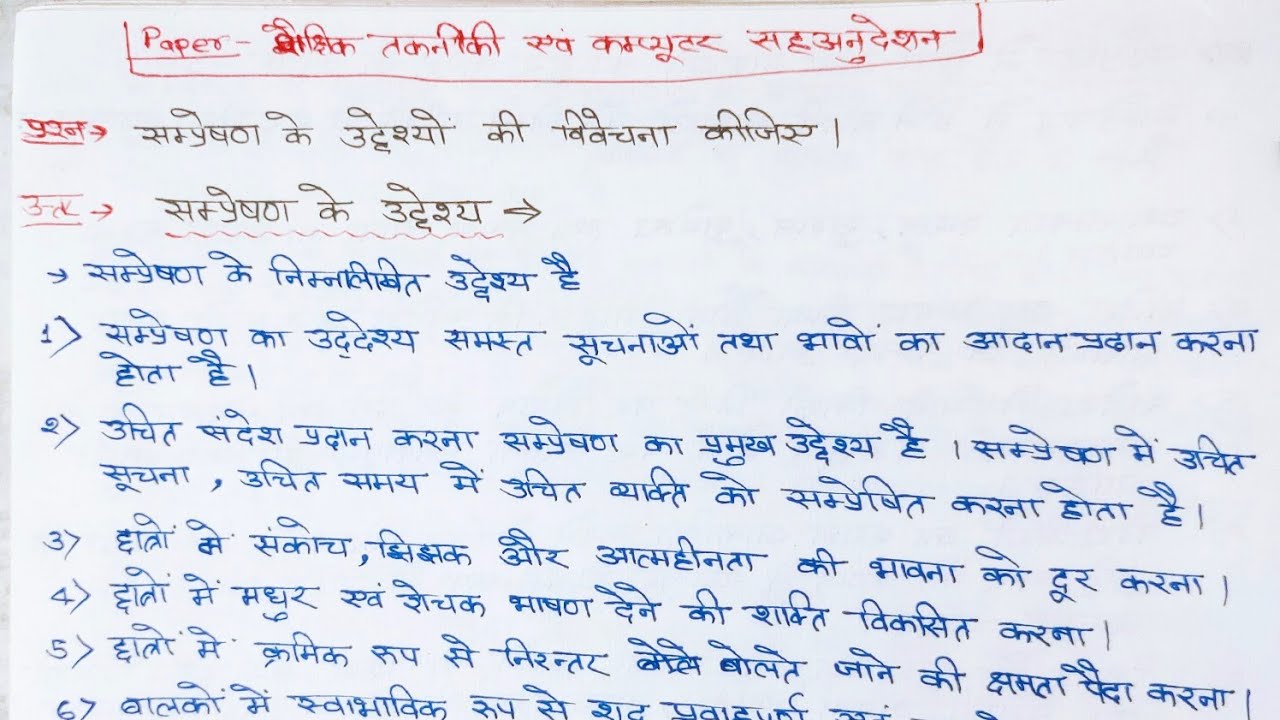 Paper - शैक्षिक तकनीकी एवं कम्प्यूटर सहअनुदेशन
प्रश्न → सम्प्रेषण के उद्देश्यों की विवेचना कीजिए।
उत्तर → सम्प्रेषण के उद्देश्य ⇒
→ सम्प्रेषण के निम्नलिखित उद्देश्य है
1) सम्प्रेषण का उद्देश्य समस्त सूचनाओं तथा भावों का आदान प्रदान करना
होता है।
2) उचित संदेश प्रदान करना सम्प्रेषण का प्रमुख उद्देश्य है। सम्प्रेषण में उचित
सूचना, उचित समय में उचित व्यक्ति को सम्प्रेषित करना होता है।
3) छात्रों में संकोच, झिझक और आत्महीनता की भावना को दूर करना।
4) छात्रों में मधुर एवं रोचक भाषण देने की शक्ति विकसित करना।
5) छात्रों में क्रमिक रूप से निरन्तर बोलते जाने की क्षमता पैदा करना।
6) बालकों में स्वाभाविक रूप से